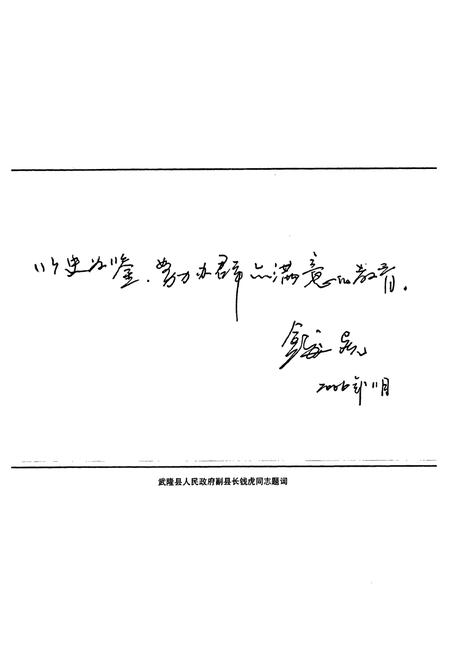 以史为鉴.努力办群众满意的教育。
钱虎
2006年11月
武隆县人民政府副县长钱虎同志题词